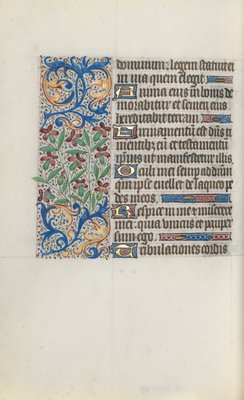 dominum: legem statuit ei
in via quem elegit
Anima eius in bonis de
morabitur et semen eius
hereditabit terram
Firmamentum est dominus ti
mentibus eum et testamentum
ipsius ut manifestetur illis
Oculi mei semper ad dominum
quia ipse euellet de laqueo pe
des meos
Respice in me et miserere
mei: quia unicus et pauper
sum ego
Tribulationes cordis